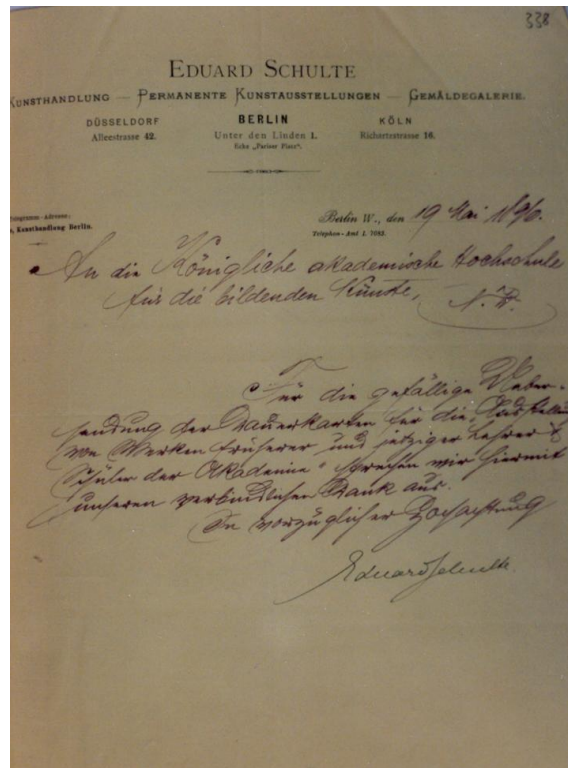 338
EDUARD SCHULTE
KUNSTHANDLUNG — PERMANENTE KUNSTAUSSTELLUNGEN — GEMÄLDEGALERIE.
DÜSSELDORF BERLIN KÖLN
Alleestrasse 42. Unter den Linden 1. Richartzstrasse 16.
Ecke „Pariser Platz“.
Telegramm-Adresse: Berlin W., den 19 Mai 1896.
Kunsthandlung Berlin. Telephon-Amt I. 7093.
An die Königliche akademische Hochschule
für die bildenden Künste,
Für die gefällige Ueber-
sendung der Dauerkarten für die „Ausstellung
von Werken früherer und jetziger Lehrer &
Schüler der Akademie“ sprechen wir hiermit
unseren verbindlichen Dank aus.
In vorzüglicher Hochachtung
Eduard Schulte.